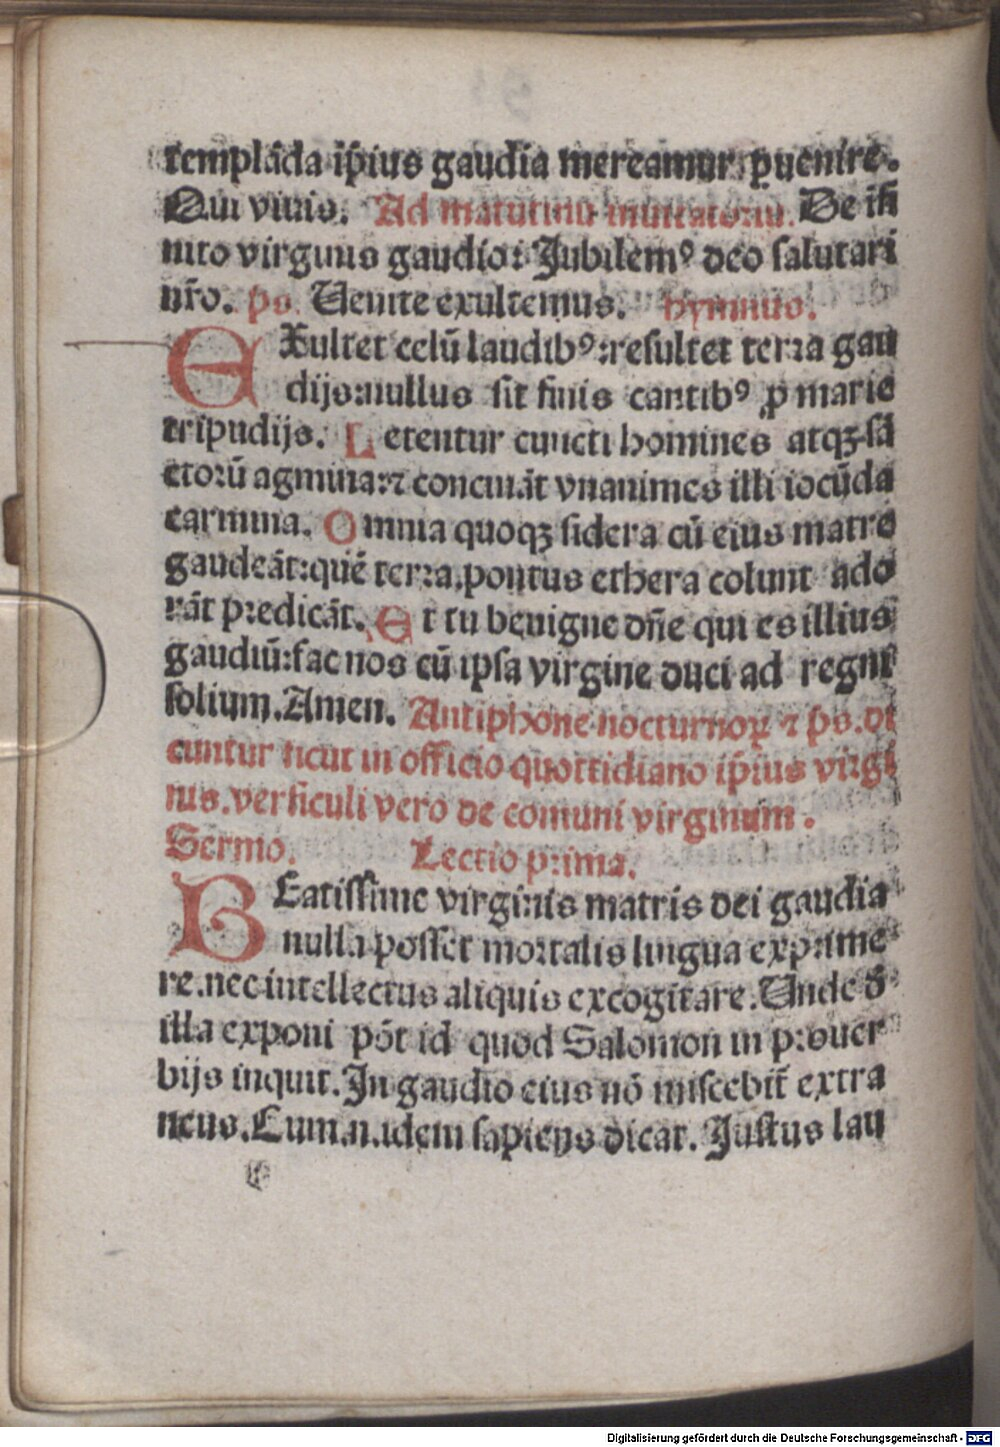 templāda ip̄ius gaudia mereamur ꝑuenire.
Qui viuis. Ad matutinū inuitatoriū. De ifi
nito virginis gaudio: Jubilemꝰ deo salutari
nr̄o. ps. Uenite exultemus. hymnus.
EXultet celū laudibꝰ: resultet terra gau
dijs: nullus sit finis cantibꝰ ꝓ marie
tripudijs. Letentur cuncti homines atqꝫ sā
ctorū agmina: ⁊ concināt vnanimes illi iocūda
carmina. Omnia quoqꝫ sidera cū eius matre
gaudeāt: quē terra, pontus ethera colunt ado
rāt predicāt. Et tu benigne dn̄e qui es illius
gaudiū: fac nos cū ipsa virgine duci ad regni
solium. Amen. Antiphone nocturnoꝝ ⁊ ps. di
cuntur sicut in officio quottidiano ip̄ius virgi
nis. versiculi vero de comuni virginum.
Sermo. Lectio prima.
BEatissime virginis matris dei gaudia
nulla posset mortalis lingua exprime
re. nec intellectus aliquis excogitare. Unde d̄
illa exponi pōt id quod Salomon in prouer
bijs inquit. In gaudio eius nō miscebit̄ extra
neus. Cum .n. idem sapiens dicat. Justus lau
Digitalisierung gefördert durch die Deutsche Forschungsgemeinschaft - DFG